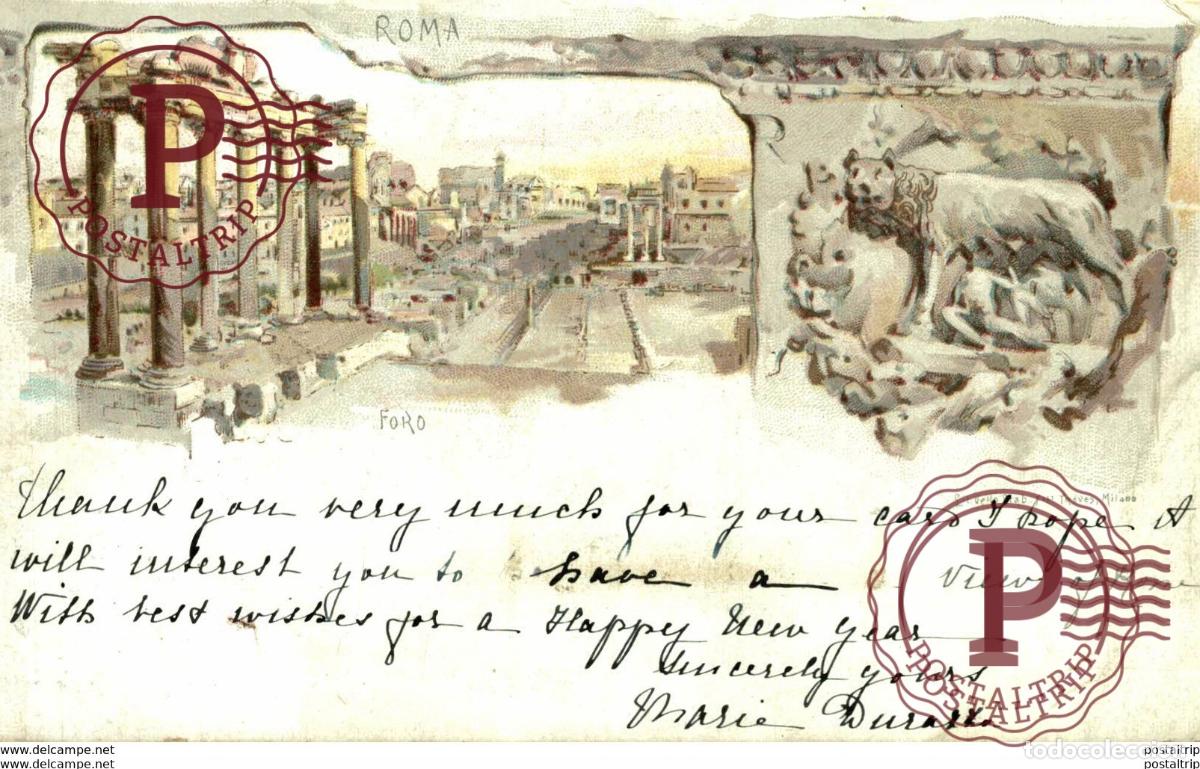 ROMA
P
POSTALTRIP
FORO
Milano
Thank you very much for your card I hope it
will interest you to have a view of
With best wishes for a Happy New Year
Sincerely yours
Marie
P
POSTALTRIP
POSTALTRIP
todocoleccion
www.todocoleccion.net postaltrip
www.todocoleccion.net postaltrip
postaltrip
postaltrip